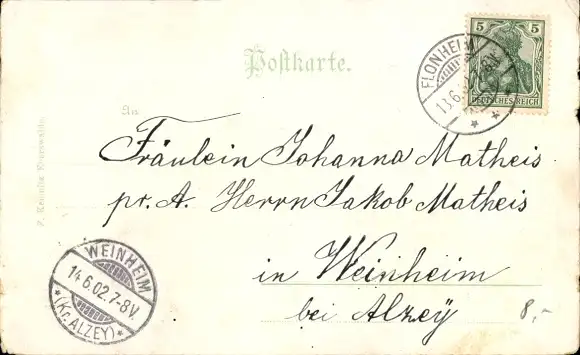 5 5
DEUTSCHES REICH
Postkarte.
FLONHEIM
13.6.
An
Fräulein Johanna Matheis
pr. A. Herrn Jakob Matheis
in Weinheim
bei Alzey
8,-
WEINHEIM
14.6.02.7-8V.
*(Kr. ALZEY)*